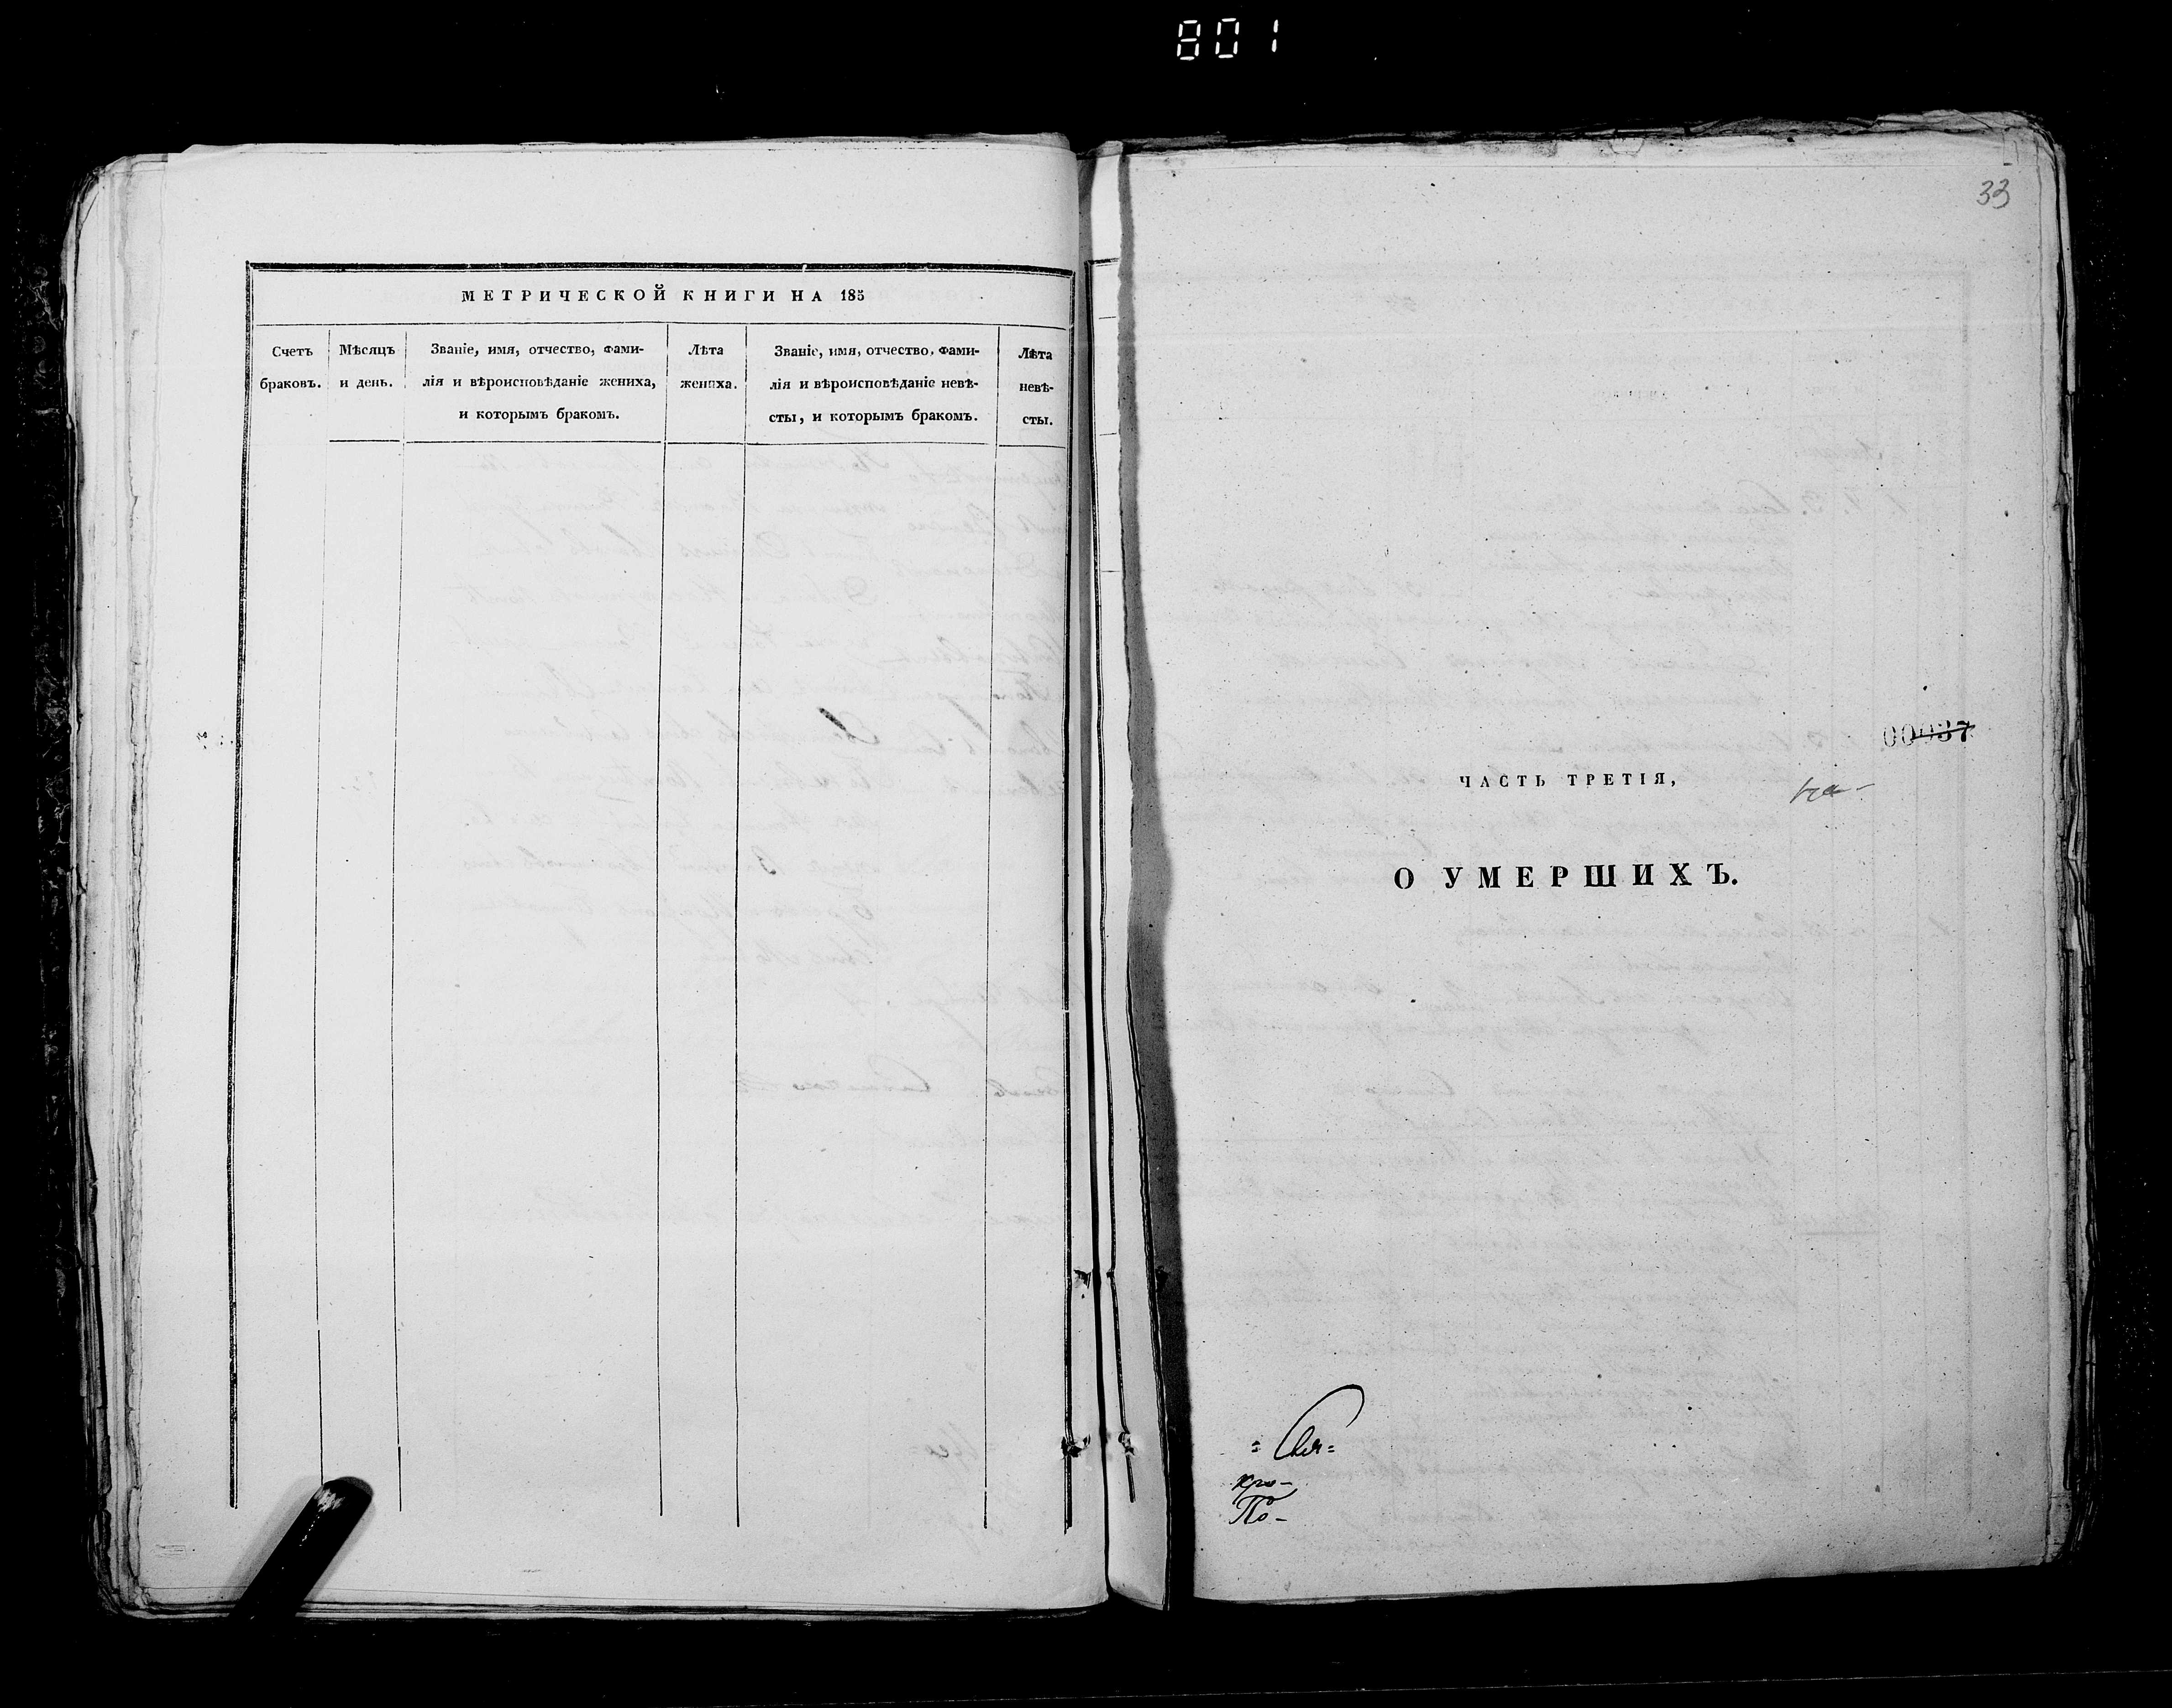 801
МЕТРИЧЕСКОЙ КНИГИ НА 185
Счетъ
браковъ.
Мѣсяцъ
и день.
Званіе, имя, отчество, фами-
лія и вѣроисповѣданіе жениха,
и которымъ бракомъ.
Лѣта
жениха.
Званіе, имя, отчество, фами-
лія и вѣроисповѣданіе невѣ-
сты, и которымъ бракомъ.
Лѣта
невѣ-
сты.
33
00037
ЧАСТЬ ТРЕТІЯ,
О УМЕРШИХЪ.
По-